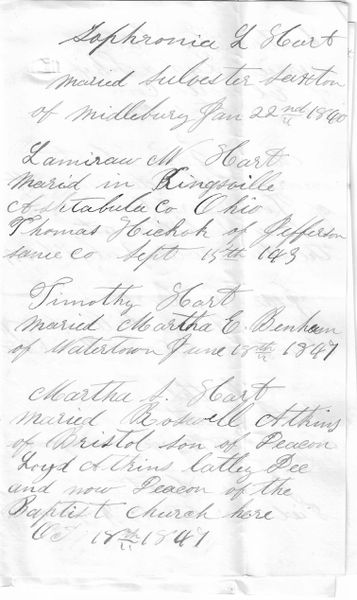 Sophronia L Hart
maried Sulvester Saxton
of Midlebury Jan 22nd 1840
Lamiraw N Hart
Marid in Kingsville
Ashtabula Co Ohio
Thomas Hickok of Jefferson
same co Sept 15th
Timothy Hart
maried Martha E. Benham
of Watertown June 18th 1847
Martha S. Hart
maried Roswell Atkins
of Bristol son of Deacon
Loyd Atkins latley Dec
and now Deacon of the
Baptist Church here
18th 1847